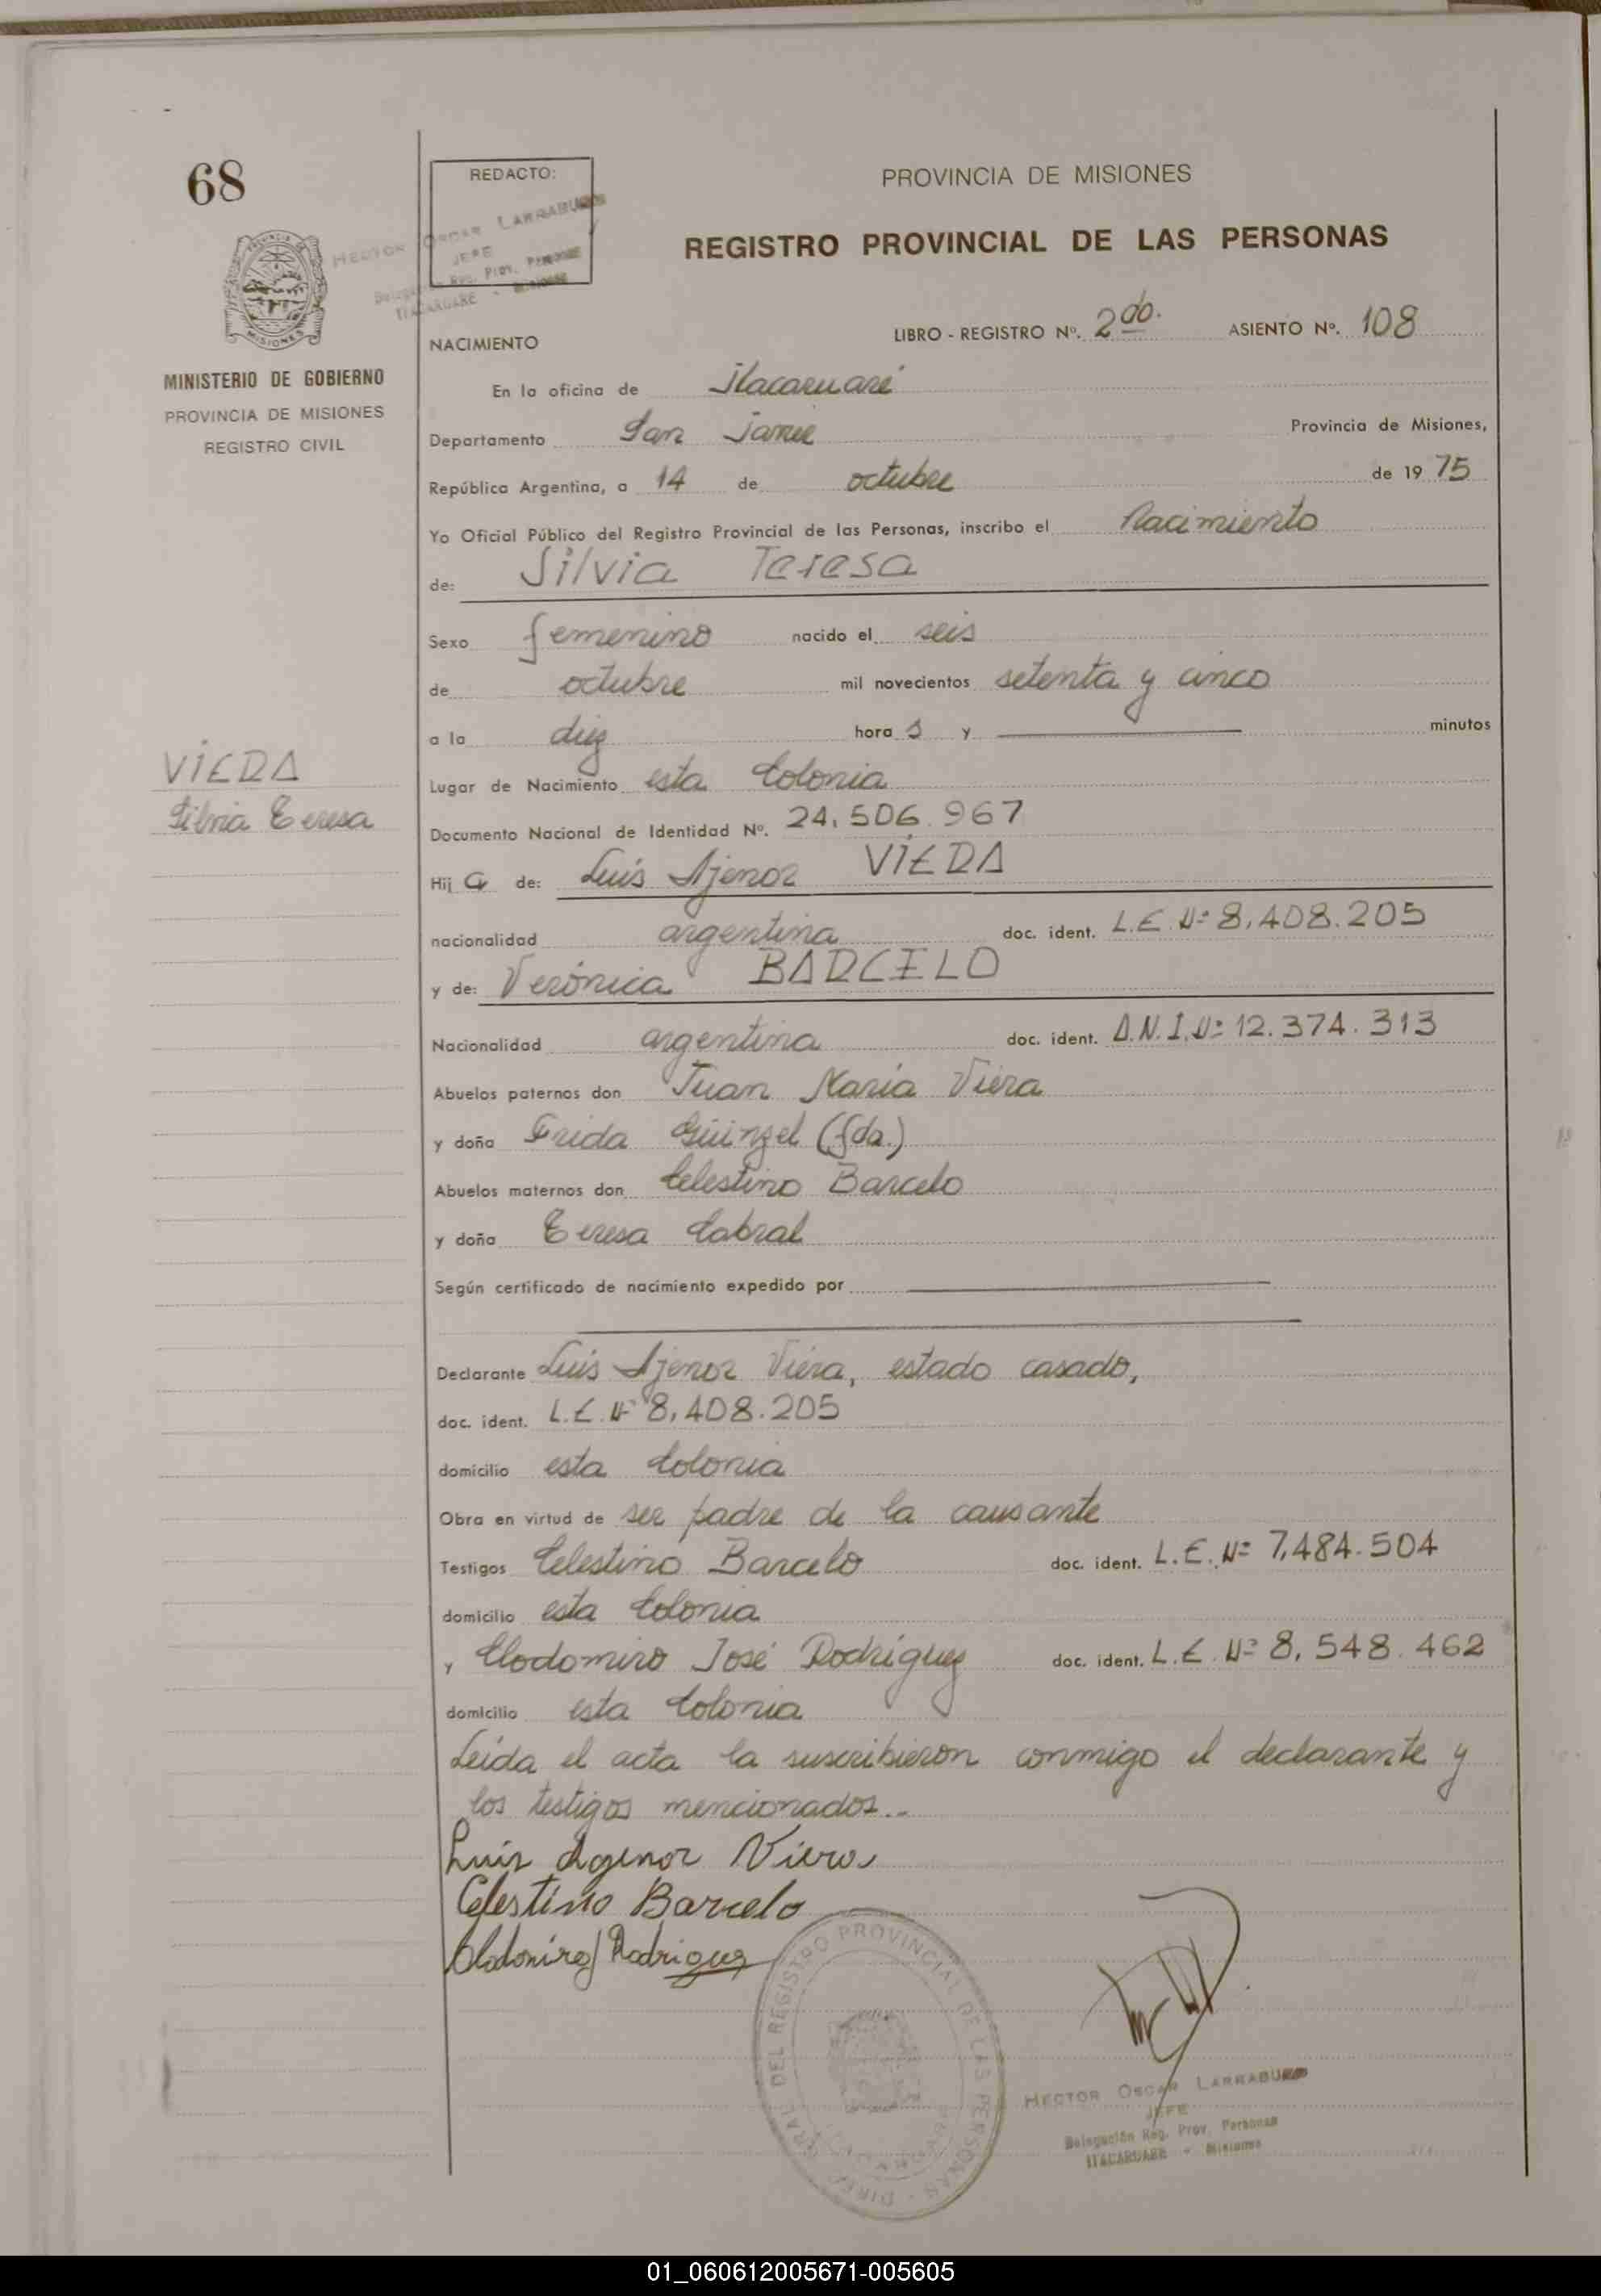 68
REDACTO:
PROVINCIA DE MISIONES
HECTOR OSCAR LARRABURE
JEFE
REGISTRO PROVINCIAL DE LAS PERSONAS
LIBRO - REGISTRO Nº. 2do. ASIENTO Nº. 108
NACIMIENTO
MINISTERIO DE GOBIERNO
PROVINCIA DE MISIONES
REGISTRO CIVIL
En la oficina de Itacaruaré
Departamento San Javier Provincia de Misiones,
República Argentina, a 14 de octubre de 19 75
Yo Oficial Público del Registro Provincial de las Personas, inscribo el Nacimiento
de: Silvia Teresa
Sexo femenino nacido el seis
de octubre mil novecientos setenta y cinco
a la diez hora s y minutos
VIERA
Silvia Teresa
Lugar de Nacimiento esta Colonia
Documento Nacional de Identidad Nº. 24.506.967
Hij a de: Luis Ajenor VIERA
nacionalidad argentina doc. ident. L.E. Nº 8.408.205
y de: Verónica BARCELO
Nacionalidad argentina doc. ident. D.N.I. Nº 12.374.313
Abuelos paternos don Juan María Viera
y doña Frida Günzel (fda.)
Abuelos maternos don Celestino Barcelo
y doña Teresa Cabral
Según certificado de nacimiento expedido por
Declarante Luis Ajenor Viera, estado casado,
doc. ident. L.E. Nº 8.408.205
domicilio esta Colonia
Obra en virtud de ser padre de la causante
Testigos Celestino Barcelo doc. ident. L.E. Nº 7.484.504
domicilio esta Colonia
y Clodomiro José Rodríguez doc. ident. L.E. Nº 8.548.462
domicilio esta Colonia
Leída el acta la suscribieron conmigo el declarante y
los testigos mencionados.-
Luis Agenor Viera
Celestino Barcelo
Clodomiro J Rodriguez
DIREC. GRAL. DEL REGISTRO PROVINCIAL DE LAS PERSONAS
HECTOR OSCAR LARRABURE
JEFE
Delegación Reg. Prov. Personas
ITACARUARE - Misiones
01_060612005671-005605